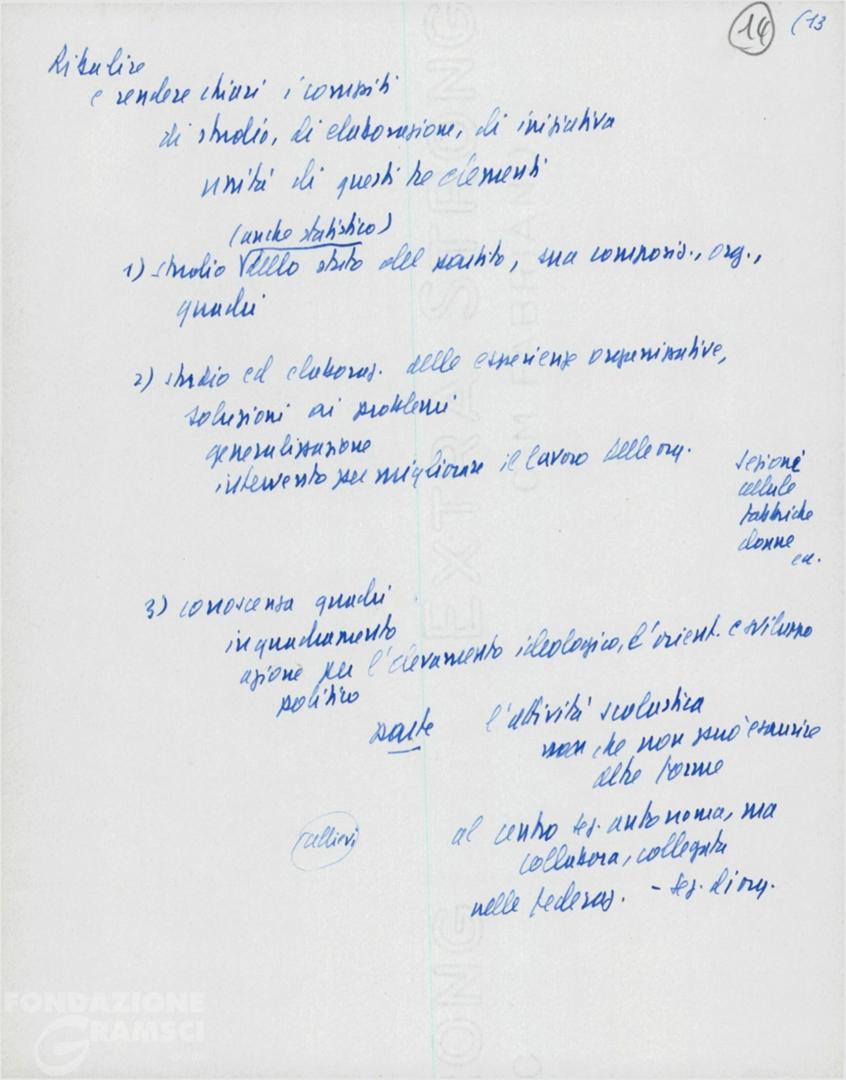 14 (13
Ribadire
e rendere chiari i compiti
di studio, di elaborazione, di iniziativa
unità di questi tre elementi
(anche statistico)
1) studio dello stato del partito, sua composiz., org.,
quadri
2) studio ed elaboraz. delle esperienze organizzative,
soluzioni ai problemi
generalizzazione
intervento per migliorare il lavoro delle org.
sezioni
cellule
fabbriche
donne
ecc.
3) conoscenza quadri
inquadramento
azione per l'elevamento ideologico, l'orient. e sviluppo
politico
parte l'attività scolastica
che non può esaurire
altre forme
al centro sez. autonoma, ma
collabora, collegata
nelle federaz. - sez. di org.
FONDAZIONE
GRAMSCI
EXTRA STRONG